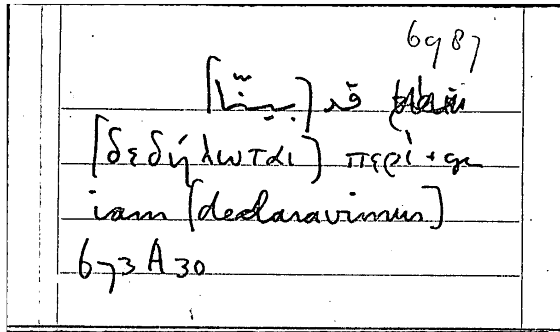 6987
قد [بيّنّا]
[δεδήλωται] περὶ + gen
iam [declaravimus]
673 A 30